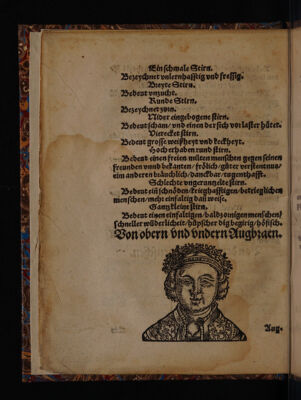 Ein schmale Stirn.
Bezeychnet vnlernhafftig vnd fressig.
Breyte Stirn.
Bedeut vnzucht.
Runde Stirn.
Bezeychnet zorn.
Nider eingebogene stirn.
Bedeut scham/ vnd einen der sich vor laster hütet.
Vierecket stirn.
Bedeut grosse weißheyt vnd keckheyt.
Hocherhaben rund stirn.
Bedeut einen freien milten menschen gegen seinen
freunden vnnd bekanten/ frölich/ güter verstentnus/
eim anderen bräuchlich/ danckbar/ tugenthafft.
Schlechte vngeruntzelte stirn.
Bedeut ein schnöden/ krieghafftigen/ betrieglichen
menschen/ mehr einfaltig dan weise.
Gantz kleine stirn.
Bedeut einen einfaltigen/ baldzornigen menschen/
schneller würderlicheit/ hüpscher dig begirig/ höfisch.
Von obern vnd vndern Augbraen.
Aug-